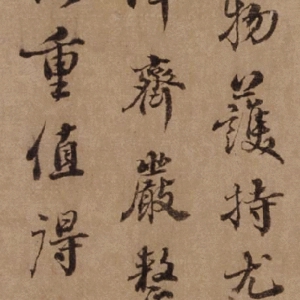 物護持尤
齊嚴整
重值得